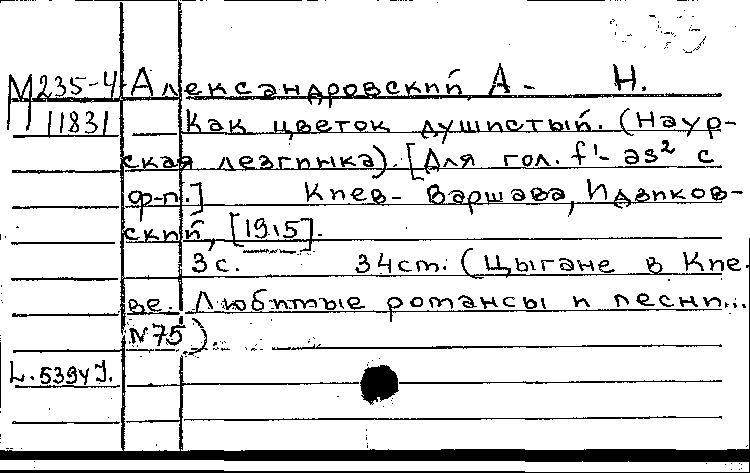 М235-4 Александровский, А- Н.
11831 Как цветок душистый. (Наур-
ская лезгинка). [Для гол. f¹- as² с
ф-п.] Киев- Варшава, Идзиков-
ский, [1915].
3 с. 34 cm. (Цыгане в Кие-
ве. Любимые романсы и песни...
N75).
L.5394 J.